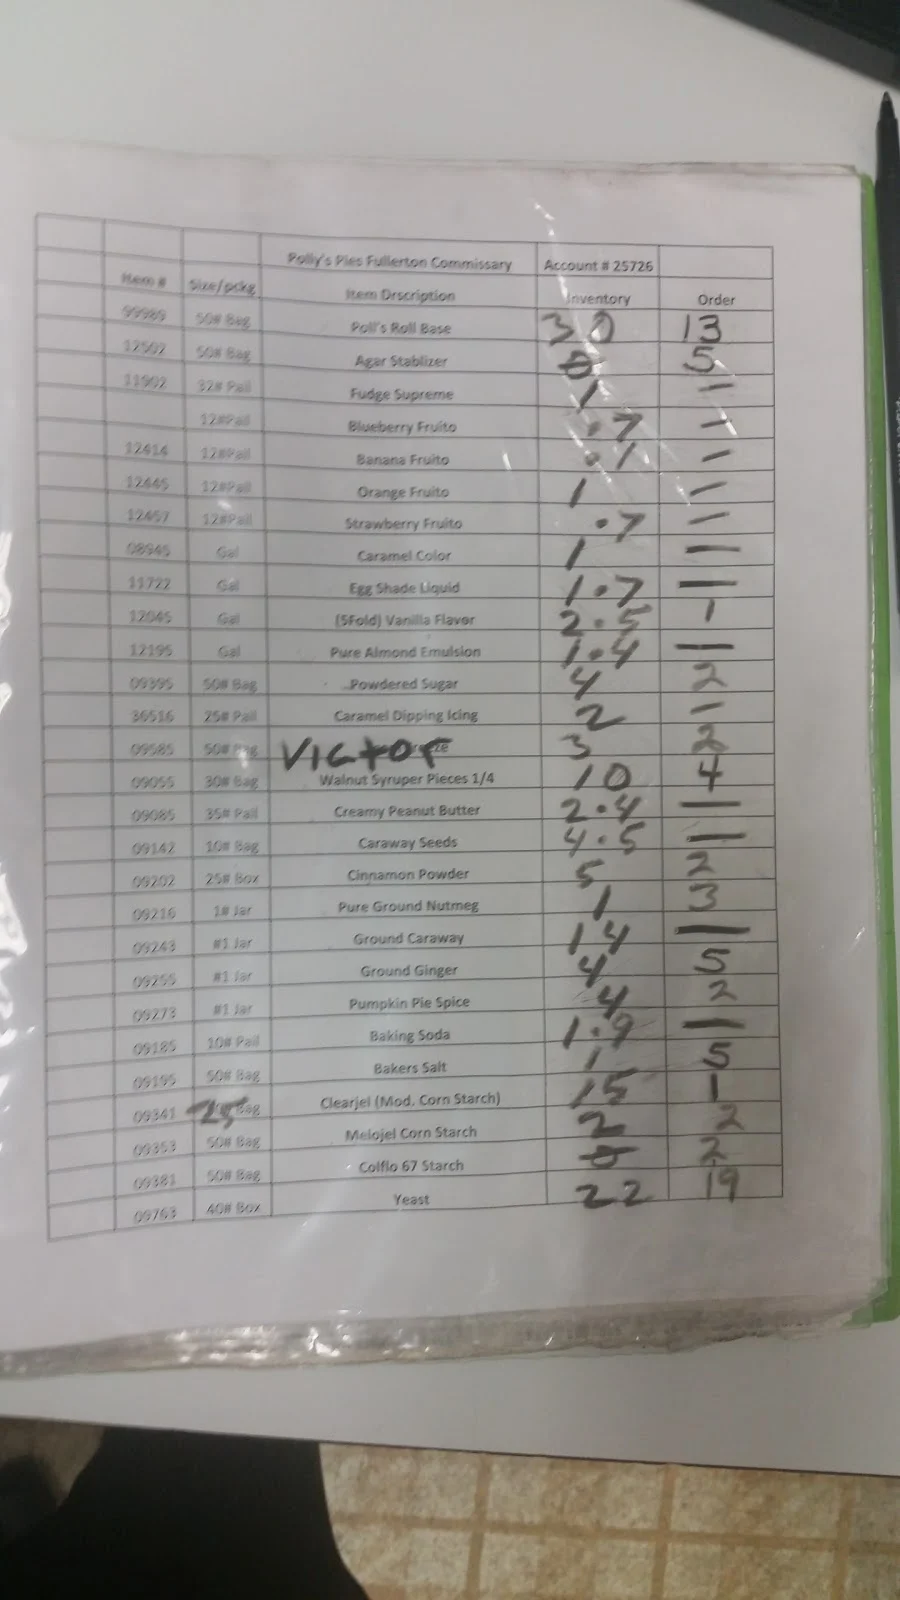 Polly's Pies Fullerton Commissary Account # 25726
Item # Size/pckg Item Drscription Inventory Order
99989 50# Bag Poll's Roll Base 30 13
12502 50# Bag Agar Stablizer 0 5
11902 32# Pail Fudge Supreme 1 1
12#Pail Blueberry Fruito .7 1
12414 12#Pail Banana Fruito .1 1
12445 12#Pail Orange Fruito 1 1
12457 12#Pail Strawberry Fruito .7 1
08945 Gal Caramel Color 1 —
11722 Gal Egg Shade Liquid 1.7 —
12045 Gal (5Fold) Vanilla Flavor 2.5 1
12195 Gal Pure Almond Emulsion 1.4 —
09395 50# Bag Powdered Sugar 4 2
36516 25# Pail Caramel Dipping Icing 2 1
09585 50# Bag VICTOR 3 2
09055 30# Bag Walnut Syruper Pieces 1/4 10 4
09085 35# Pail Creamy Peanut Butter 2.4 —
09142 10# Bag Caraway Seeds 4.5 —
09202 25# Box Cinnamon Powder 5 2
09216 1# Jar Pure Ground Nutmeg 1 3
09243 #1 Jar Ground Caraway 14 —
09255 #1 Jar Ground Ginger 4 5
09273 #1 Jar Pumpkin Pie Spice 4 2
09185 10# Pail Baking Soda 1.9 —
09195 50# Bag Bakers Salt 1 5
09341 25 Bag Clearjel (Mod. Corn Starch) 15 1
09353 50# Bag Melojel Corn Starch 2 2
09381 50# Bag Colflo 67 Starch 0 2
09763 40# Box Yeast 22 19